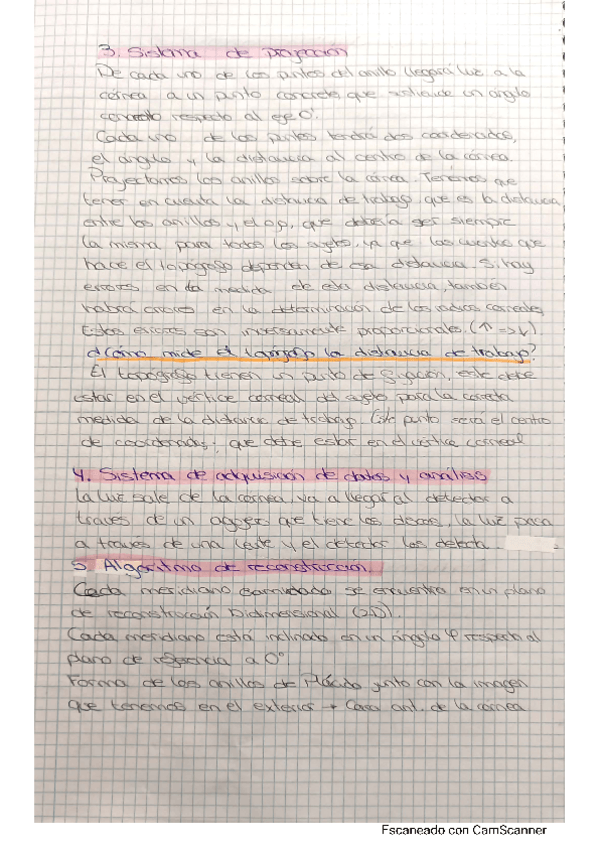 3. Sistema de proyección
De cada uno de los puntos del anillo llegará luz a la
córnea a un punto concreto que extiende un ángulo
concreto respecto al eje 0°.
Cada uno de los puntos tendrá dos coordenadas,
el ángulo y la distancia al centro de la córnea.
Proyectamos los anillos sobre la córnea. Tenemos que
tener en cuenta la distancia de trabajo, que es la distancia
entre los anillos y el ojo, que debería ser siempre
la misma para todos los sujetos, ya que las cuentas que
hace el topógrafo dependen de esa distancia. Si hay
errores en la medida de esta distancia, también
habrá errores en la determinación de los radios corneales
Estos errores son inversamente proporcionales. (↑ => ↓)
¿Cómo mide el topógrafo la distancia de trabajo?
El topógrafo tienen un punto de fijación, este debe
estar en el vértice corneal del sujeto para la correcta
medida de la distancia de trabajo. Este punto será el centro
de coordenadas; que debe estar en el vértice corneal
4. Sistema de adquisición de datos y análisis
La luz sale de la córnea, va a llegar al detector a
través de un agujero que tiene los discos, la luz pasa
a través de una lente y el detector los detecta.
5. Algoritmo de reconstrucción
Cada meridiano se encuentra en un plano
de reconstrucción bidimensional (2D).
Cada meridiano está inclinado en un ángulo φ respecto al
plano de referencia a 0°
Forma de los anillos de Plácido junto con la imagen
que tenemos en el exterior → Cara ant. de la córnea
Escaneado con CamScanner